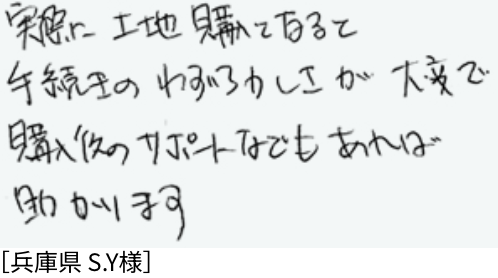 実際に土地購入となると
手続きのわずらわしさが大変で
購入後のサポートなどもあれば
助かります
[兵庫県 S.Y様]